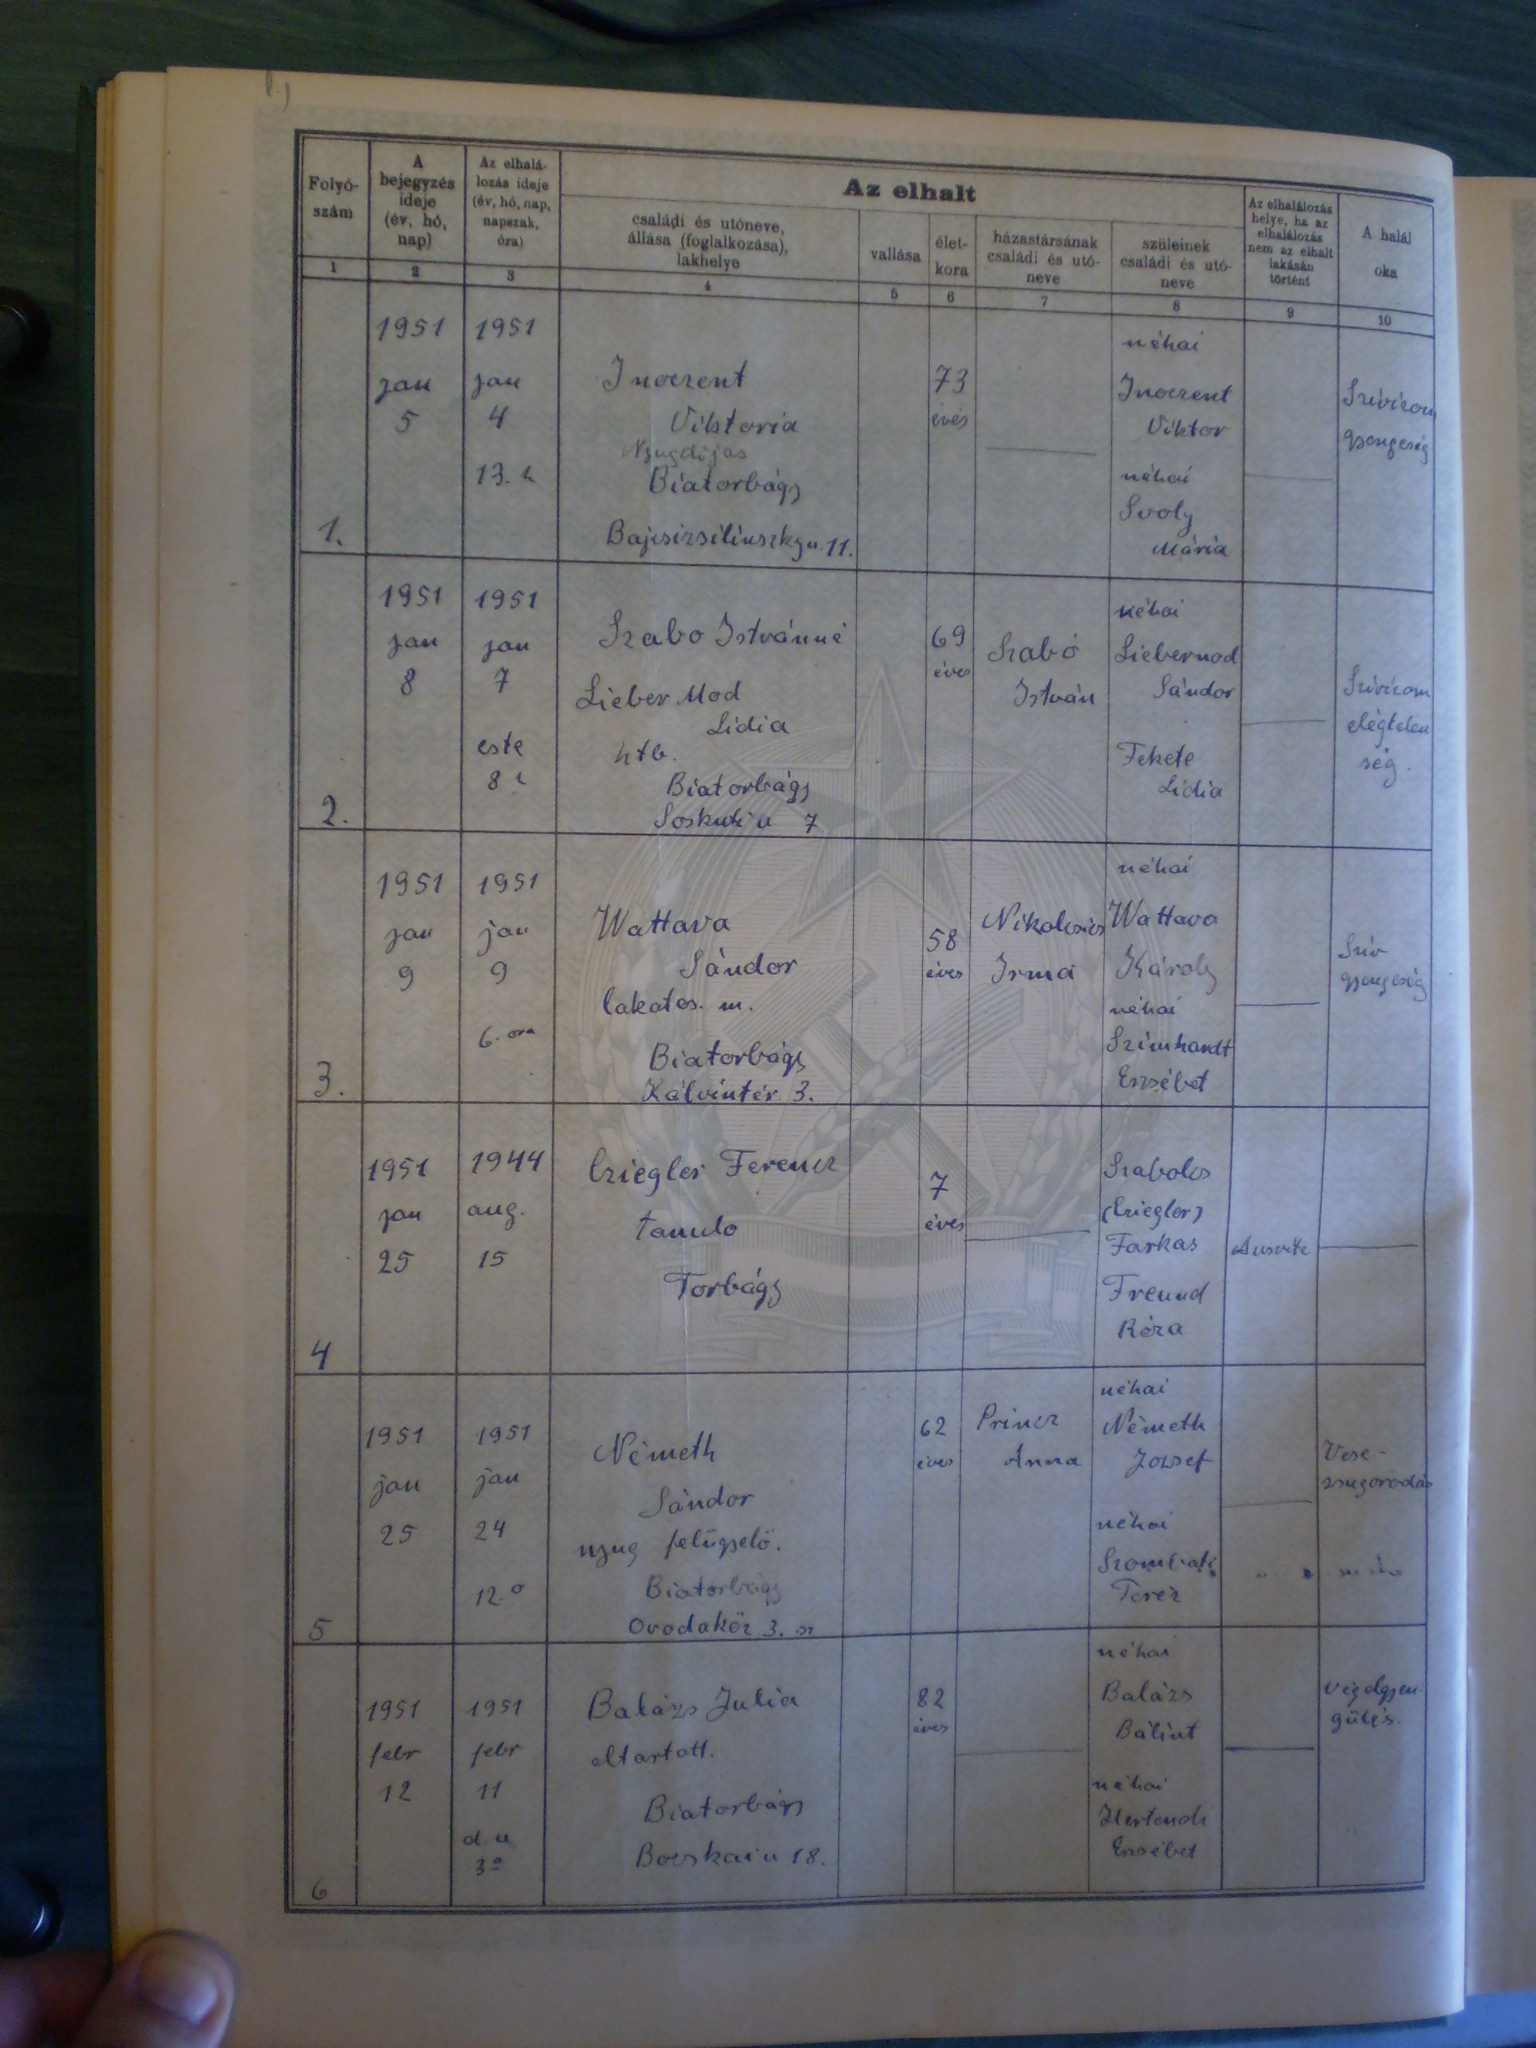 Folyó-
szám
A
bejegyzés
ideje
(év, hó,
nap)
Az elhalá-
lozás ideje
(év, hó, nap,
napszak,
óra)
Az elhalt
családi és utóneve,
állása (foglalkozása),
lakhelye
vallása
élet-
kora
házastársának
családi és utó-
neve
szüleinek
családi és utó-
neve
Az elhalálozás
helye, ha az
elhalálozás
nem az elhalt
lakásán
történt
A halál
oka
1 2 3 4 5 6 7 8 9 10
1.
1951
jan
5
1951
jan
4
13. h
Inoczent
Viktoria
Nyugdijas
Biatorbágy
Bajcsizsilinszky u. 11.
73
éves
néhai
Inoczent
Viktor
néhai
Svoly
Mária
Szivizom
gyengeség
2.
1951
jan
8
1951
jan
7
este
8 h
Szabo Istvánné
Lieber Mod
Lidia
htb.
Biatorbágy
Soskuti u 7
69
éves
Szabó
István
néhai
Liebermod
Sándor
Fekete
Lidia
Szivizom
elégtelen
ség.
3.
1951
jan
9
1951
jan
9
6. ora
Wattava
Sándor
lakatos. m.
Biatorbágy
Kálvintér 3.
58
éves
Nikolcsics
Irma
néhai
Wattava
Károly
néhai
Szimhandt
Erzsébet
Sziv
gyengeség
4
1951
jan
25
1944
aug.
15
Cziegler Ferencz
tanulo
Torbágy
7
éves
Szabolcs
(Cziegler)
Farkas
Freund
Róza
Ausvitz
5
1951
jan
25
1951
jan
24
12. o
Németh
Sándor
nyug felügyelö.
Biatorbágy
Ovodaköz 3. sz
62
éves
Princz
Anna
néhai
Németh
Jozsef
néhai
Szombati
Teréz
Vese-
zsugorodás
6
1951
febr
12
1951
febr
11
d. u
3 o
Balázs Julia
eltartott.
Biatorbágy
Bocskai u 18.
82
éves
néhai
Balázs
Bálint
néhai
Hertendi
Erzsébet
végelgyen
gülés.